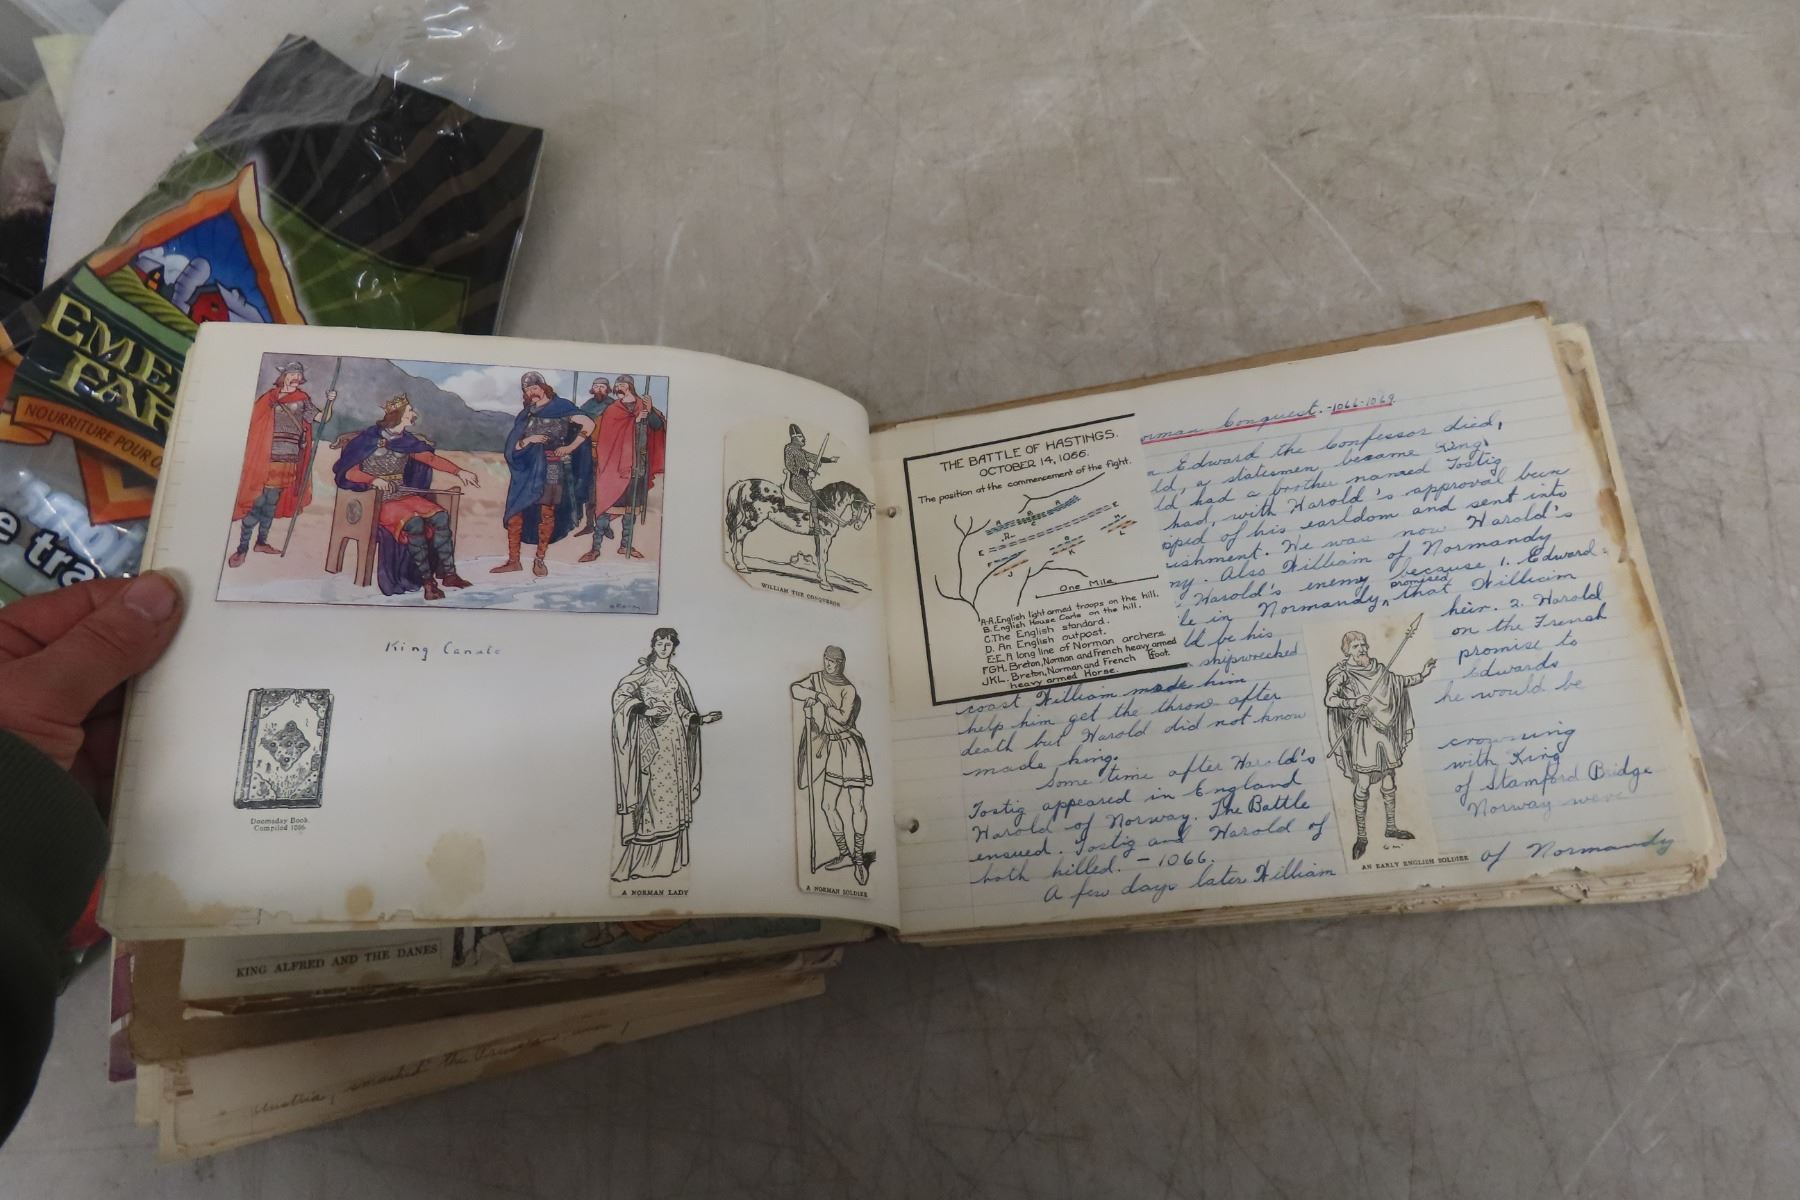 EME
FAR
NOURRITURE POUR
e tra
King Canute
WILLIAM THE CONQUEROR
Doomsday Book.
Compiled 1086.
A NORMAN LADY
A NORMAN SOLDIER
KING ALFRED AND THE DANES
Austria, smashed the
THE BATTLE OF HASTINGS.
OCTOBER 14, 1066.
The position at the commencement of the fight.
One Mile
A-A. English light armed troops on the hill.
B. English House Carls on the hill.
C. The English standard.
D. An English outpost.
E-E. A long line of Norman archers.
FGH. Breton, Norman and French heavy armed Foot.
JKL. Breton, Norman and French
heavy armed Horse.
orman Conquest. -1066-1069.
n Edward the Confessor died,
ld, a statesmen, became King.
ld had a brother named Tostig
had, with Harold's approval been
pped of his earldom and sent into
ishment. He was now Harold's
ny. Also William of Normandy
Harold's enemy because, 1. Edward
le in Normandy, promised that William
ld be his heir. 2. Harold
shipwrecked on the French
coast, William made him promise to
help him get the throne after Edwards
death but Harold did not know he would be
made king.
Some time after Harold's crowning
Tostig appeared in England with King
Harold of Norway. The Battle of Stamford Bridge
ensued. Tostig and Harold of Norway were
both killed. - 1066.
A few days later William of Normandy
AN EARLY ENGLISH SOLDIER